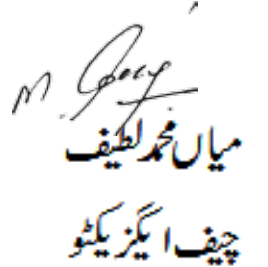 میاں محمد لطیف
چیف ایگزیکٹو